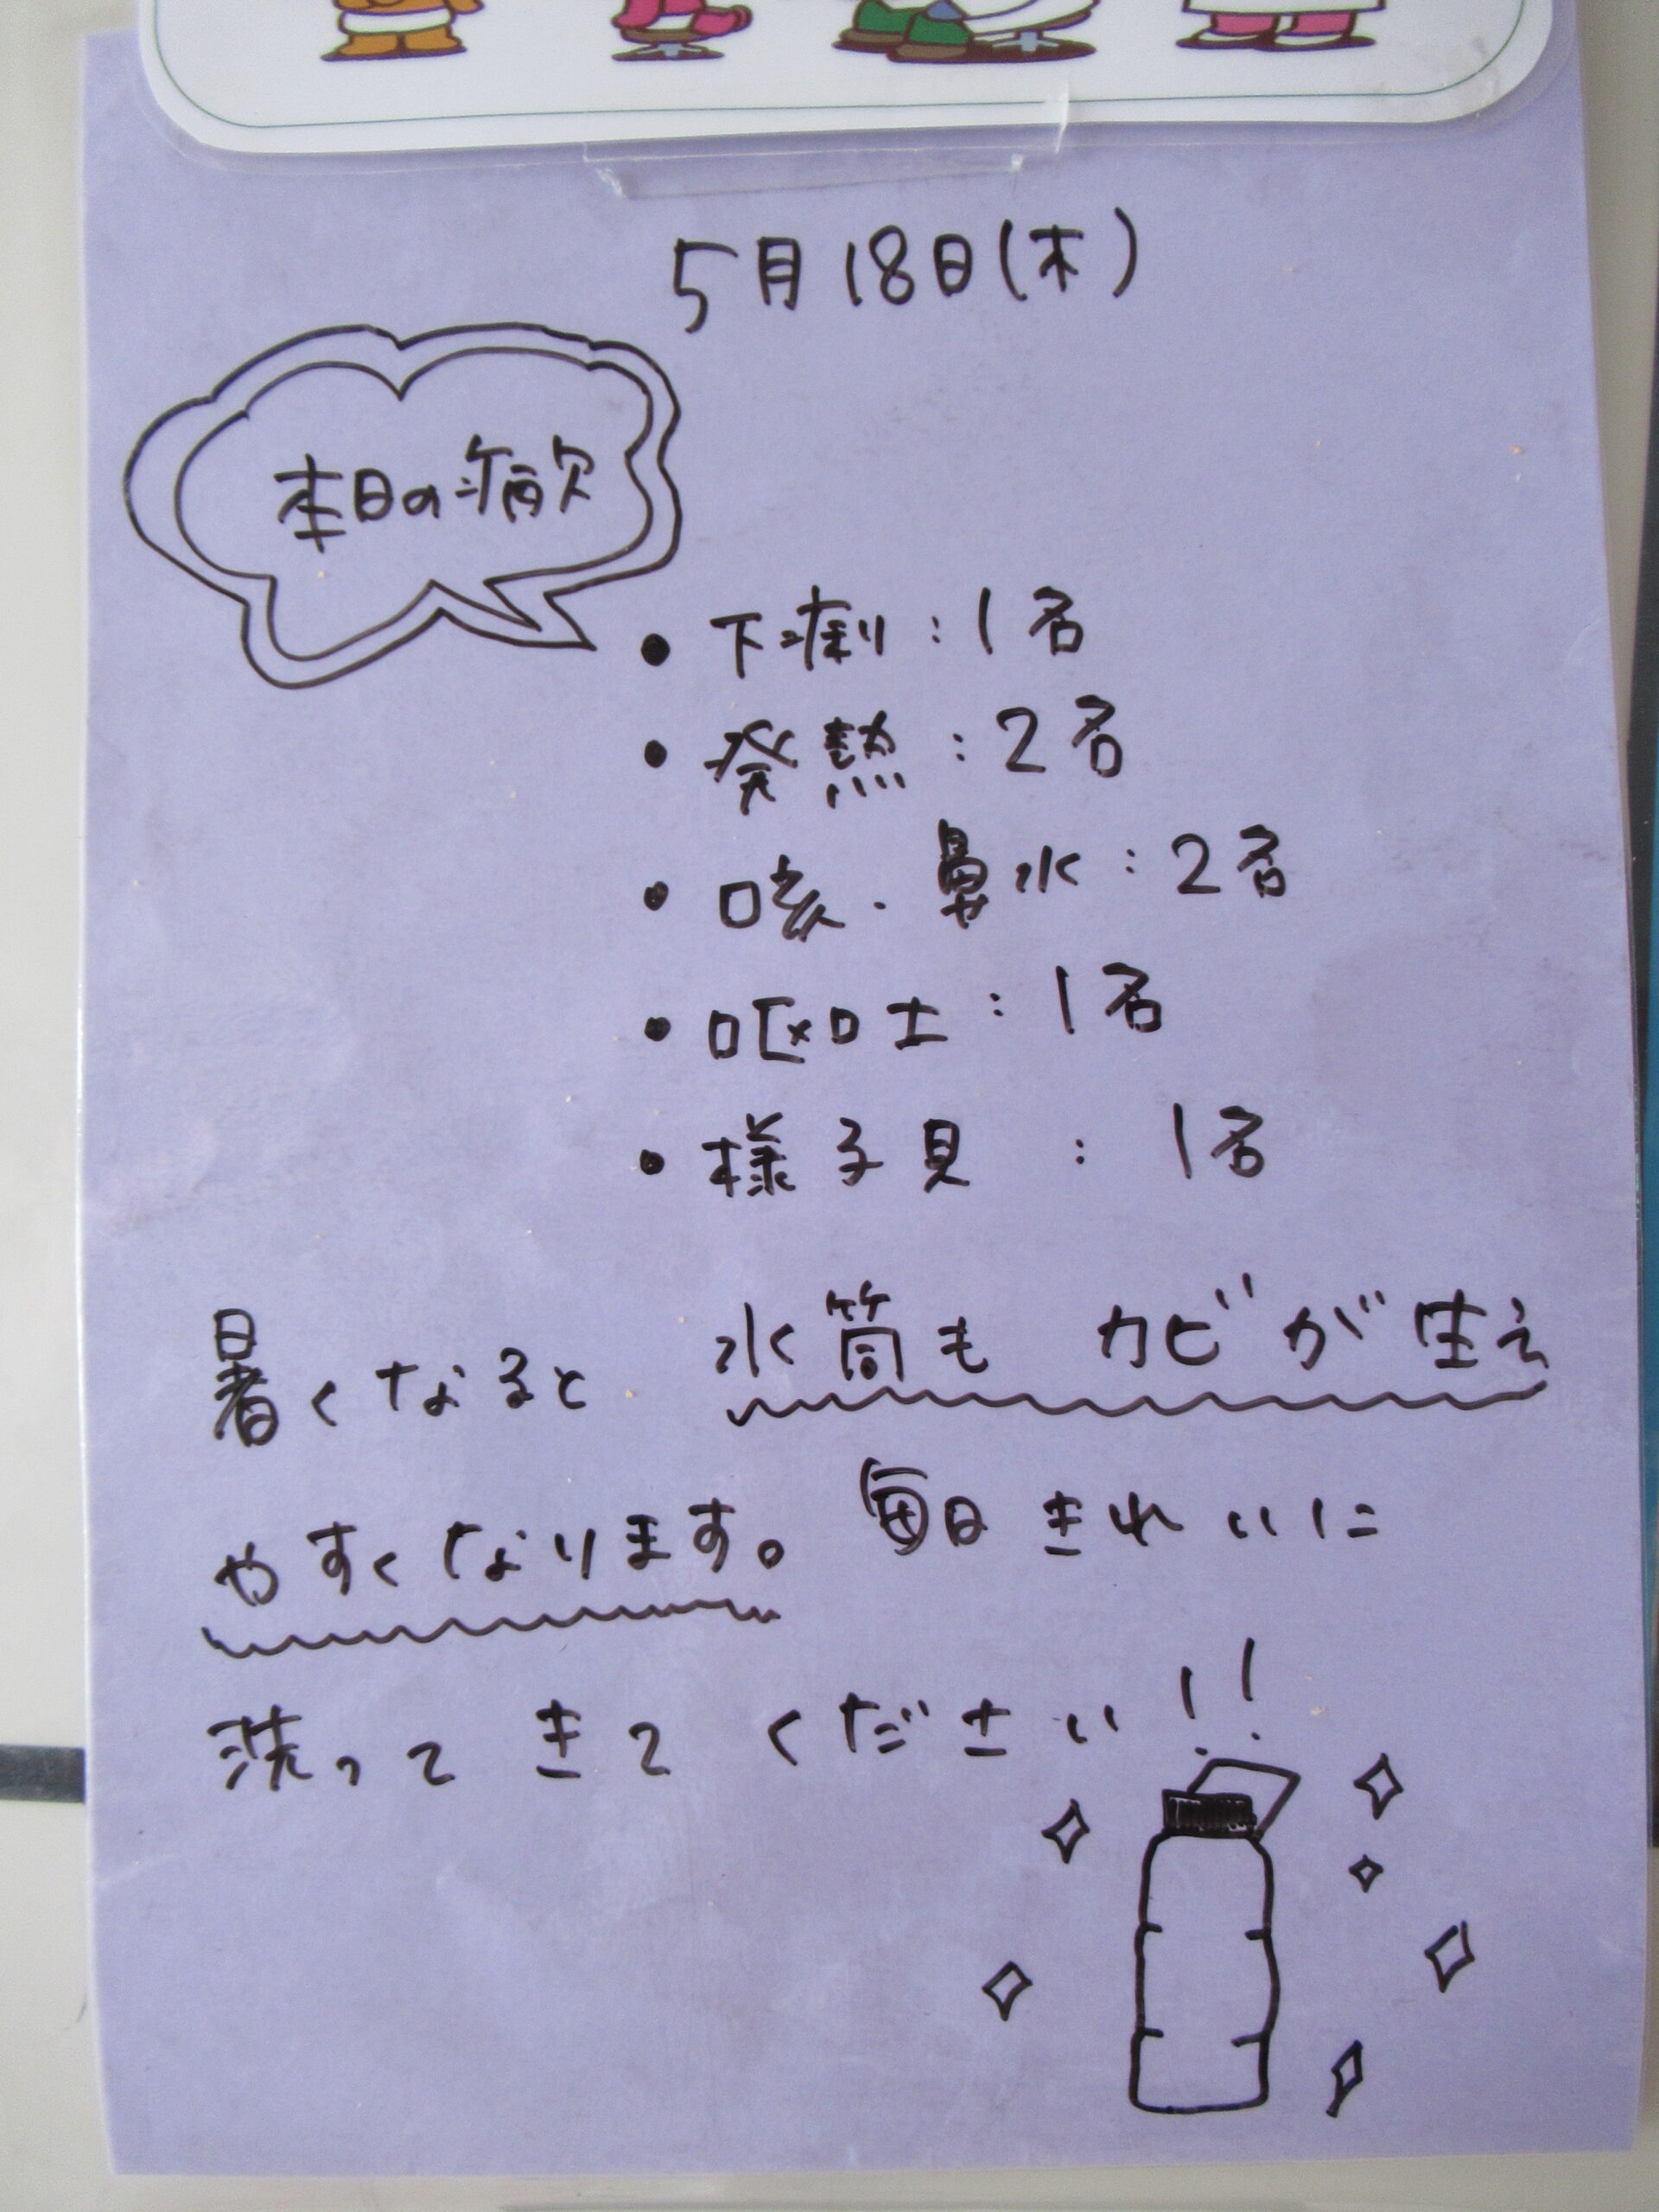 5月18日(木)
本日の病欠
• 下痢:1名
• 発熱:2名
• 咳・鼻水:2名
• 嘔吐:1名
• 様子見:1名
暑くなると 水筒も カビが生え
やすくなります。毎日 きれいに
洗って きて ください!!